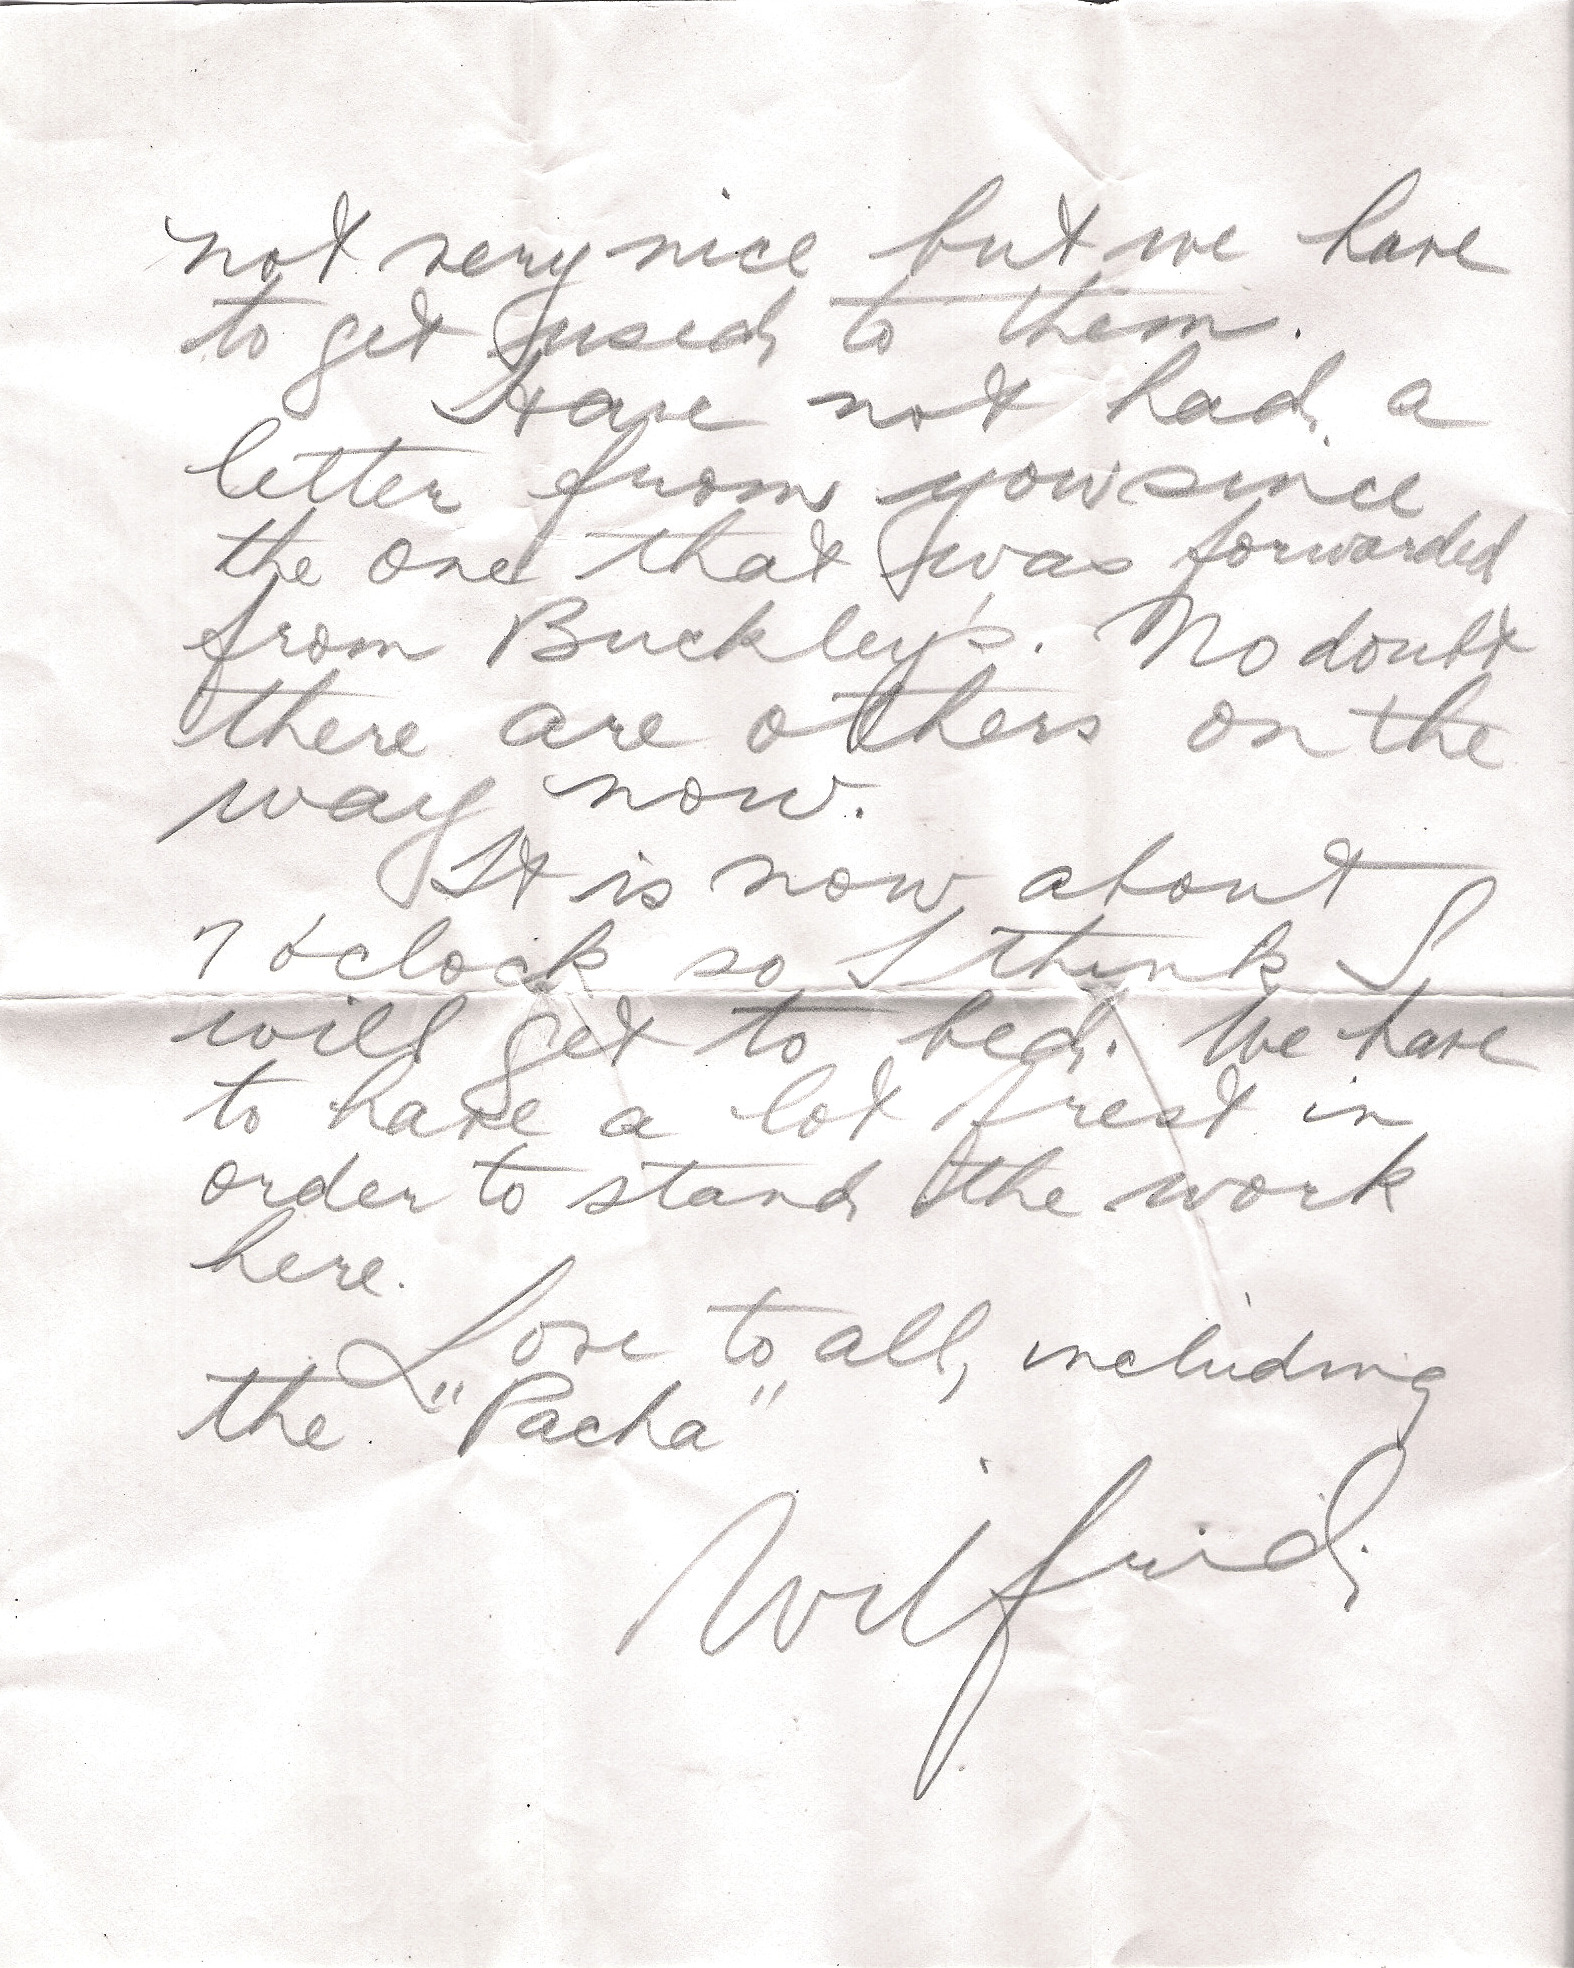 not very nice but we have
to get used to them.
Have not had a
letter from you since
the one that was forwarded
from Buckley's. No doubt
there are others on the
way now.
It is now about
7 o'clock so I think I
will get to bed. We have
to have a lot frest in
order to stand the work
here.
Love to all, including
the "Pacha"
Wilfrid